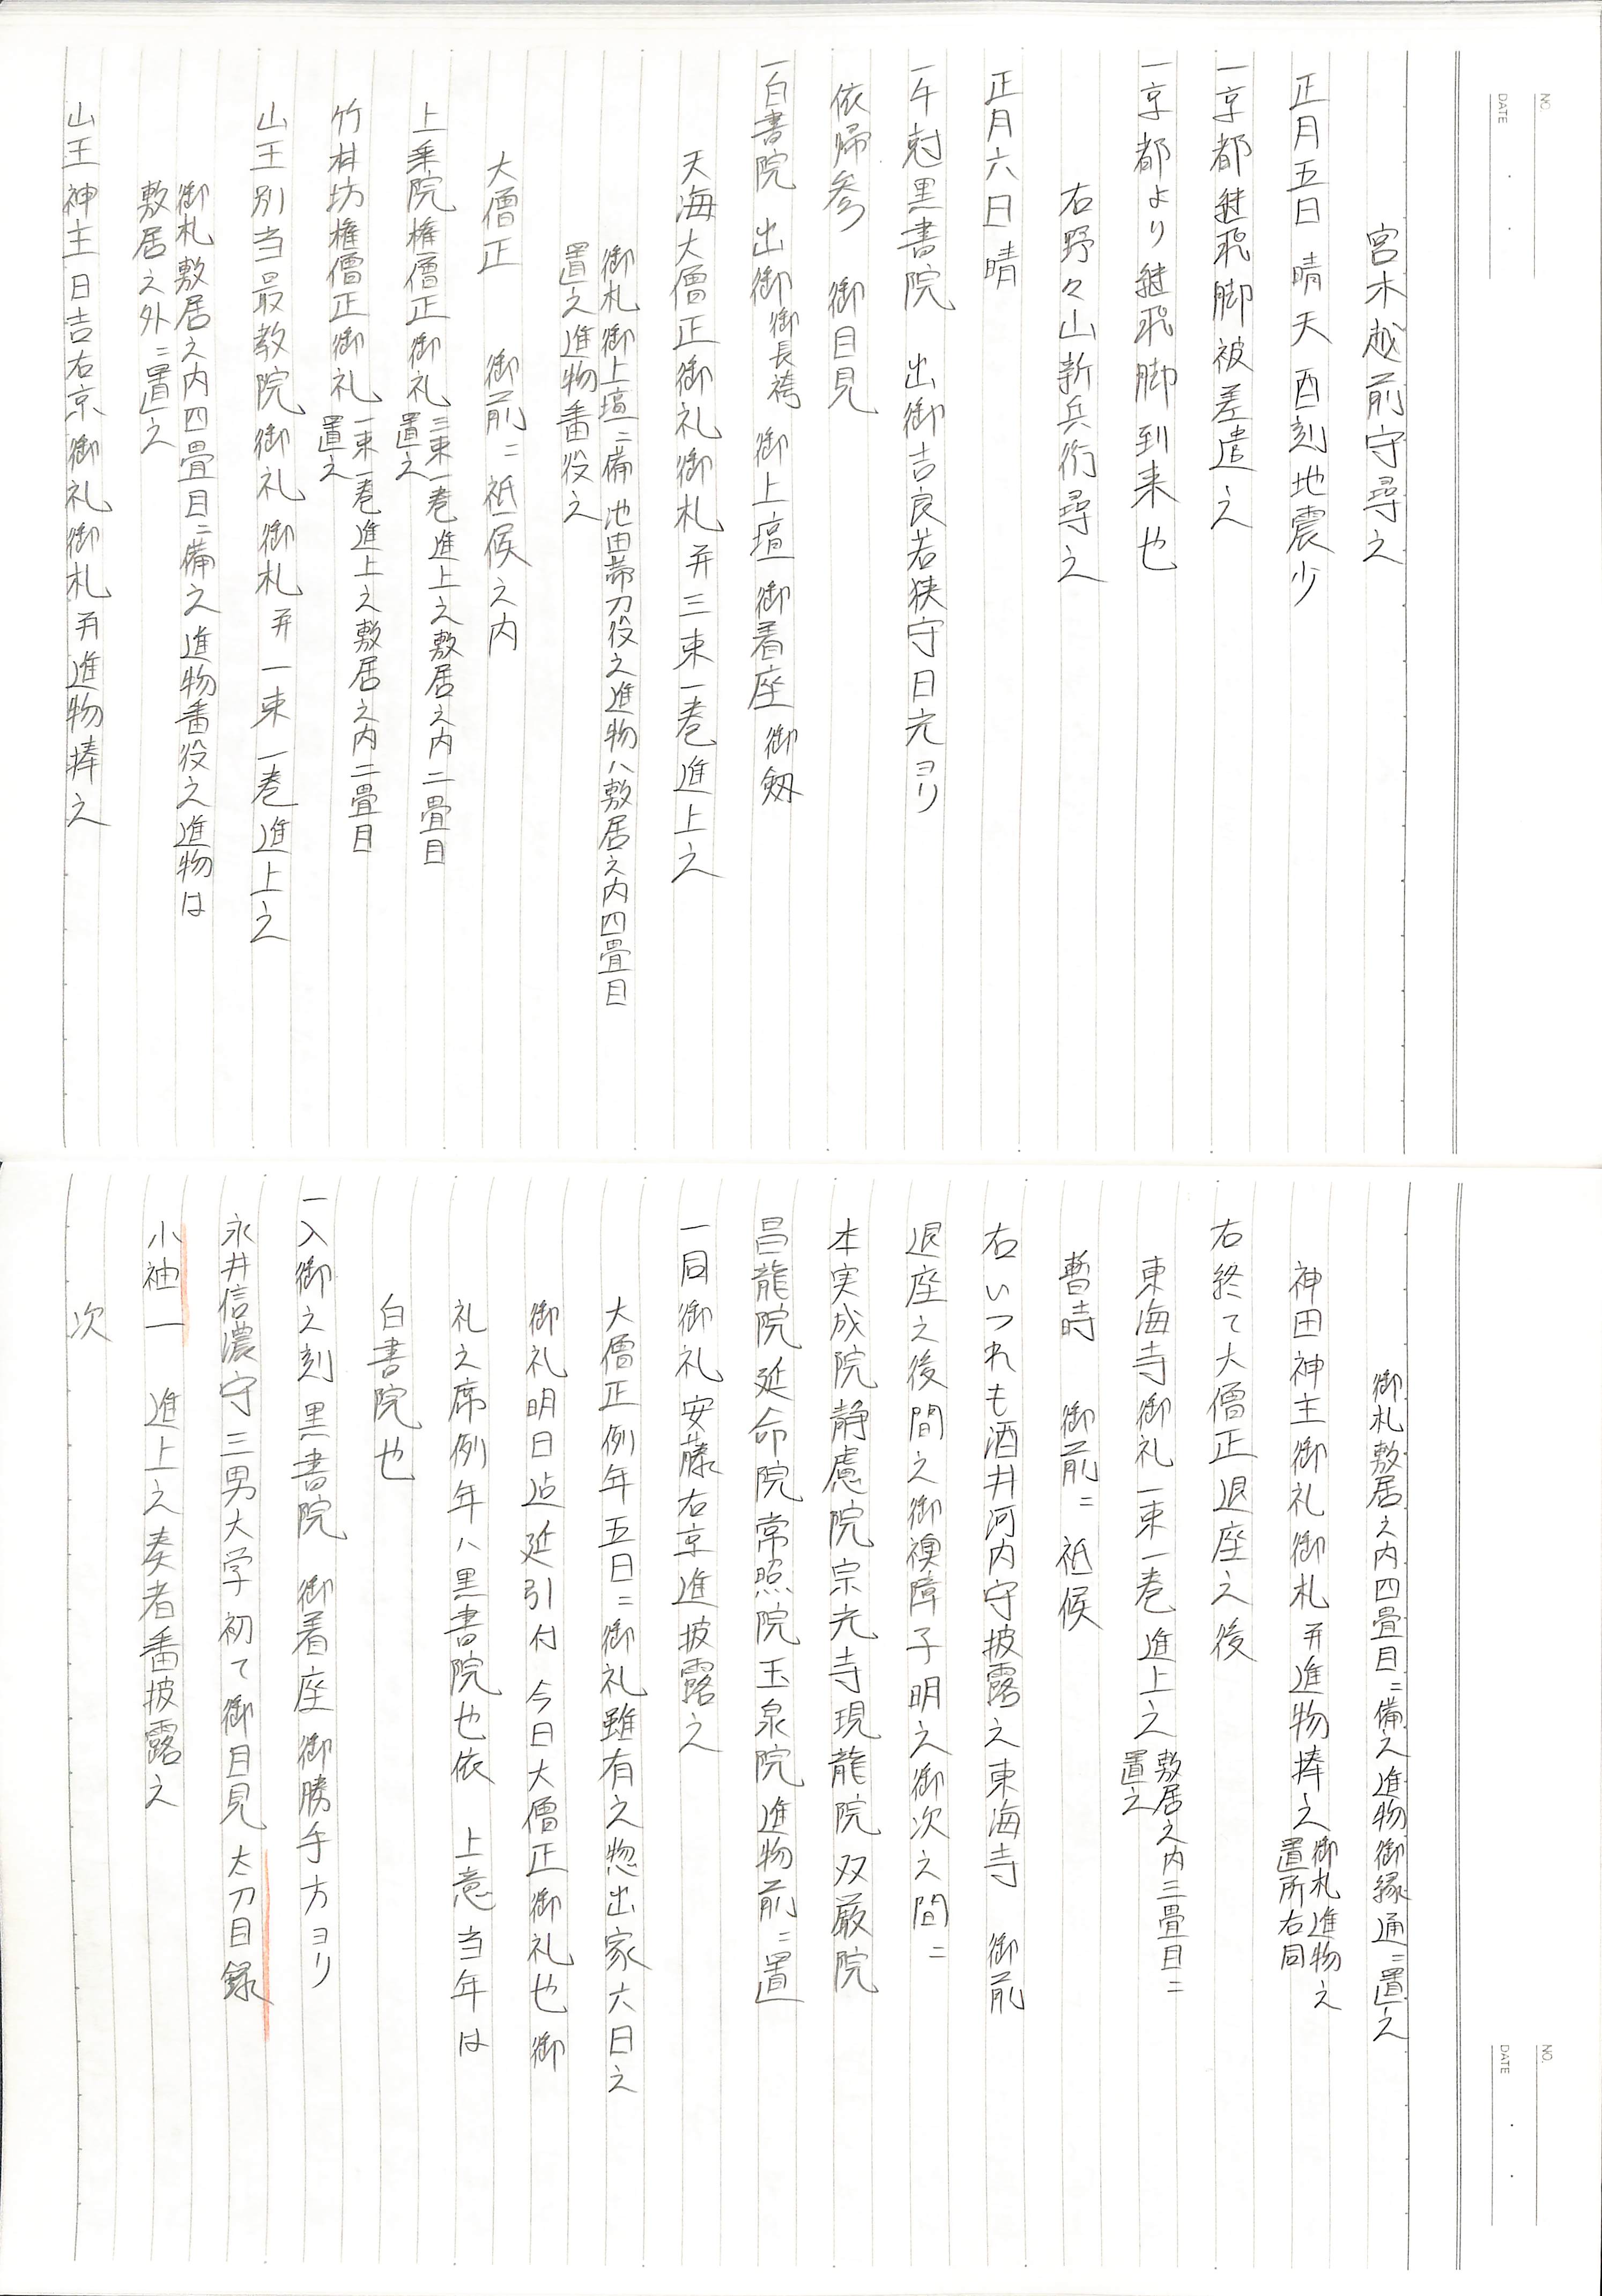 NO.
DATE
宮木越前守尋之
正月五日 晴天 酉刻地震少
一京都継飛脚被差遣之
一京都より継飛脚到来也
右野々山新兵衛尋之
正月六日 晴
一午尅黒書院 出御吉良若狭守日光ヨリ
依帰参 御目見
一白書院 出御御長袴 御上壇 御着座 御剱
天海大僧正御礼御札并三束一巻進上之
御札御上壇ニ備 池田帯刀役之進物ハ敷居之内四畳目
置之進物番役之
大僧正 御前ニ祗候之内
上乗院権僧正御礼 三束一巻進上之敷居之内二畳目
置之
竹林坊権僧正御礼 一束一巻進上之敷居之内二畳目
置之
山王別当最教院御礼 御札并一束一巻進上之
御札敷居之内四畳目ニ備之進物番役之進物は
敷居之外ニ置之
山王神主日吉右京御礼御札并進物捧之
NO.
DATE
御札敷居之内四畳目ニ備之進物御縁通ニ置之
神田神主御礼御札并進物捧之 御札進物之
置所右同
右終て大僧正退座之後
東海寺御礼一束一巻進上之 敷居之内三畳目ニ
置之
暫時 御前ニ祗候
右いつれも酒井河内守披露之東海寺 御前
退座之後間之御襖障子明之御次之間ニ
本実成院静慮院宗光寺現龍院双厳院
昌龍院延命院常照院玉泉院進物前ニ置
一同御礼安藤右京進披露之
大僧正例年五日ニ御礼雖有之惣出家六日之
御礼明日迄延引付 今日大僧正御礼也御
礼之席例年ハ黒書院也依 上意当年は
白書院也
一入御之刻黒書院 御着座御勝手方ヨリ
永井信濃守三男大学初て御目見 太刀目録
小袖一 進上之奏者番披露之
次